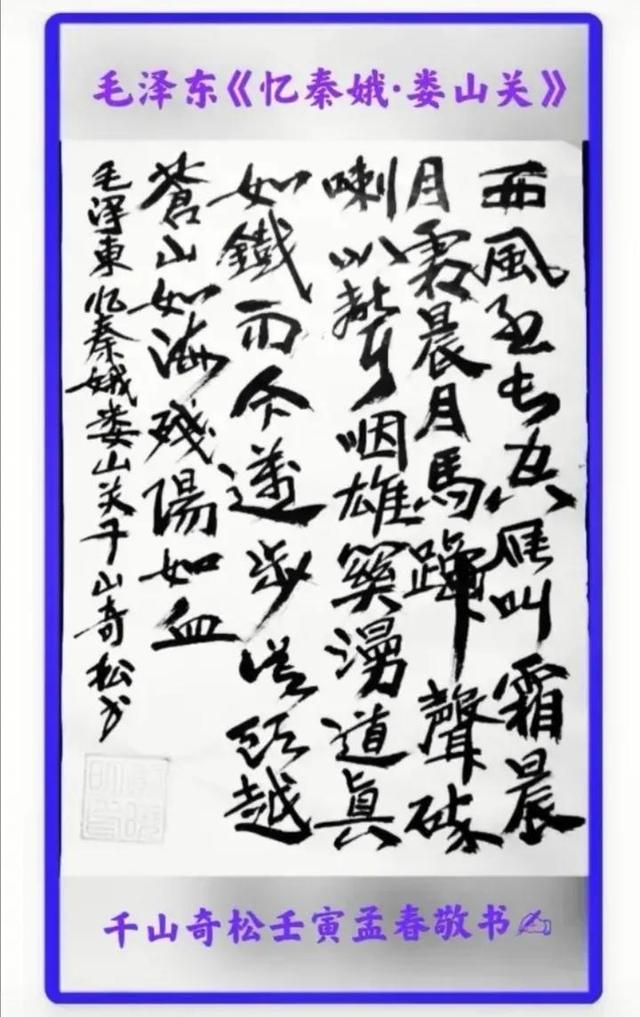 毛泽东《忆秦娥·娄山关》
西風烈长空雁叫霜晨
月霜晨月馬蹄聲碎
喇叭聲咽雄關漫道真
如鐵而今邁步從頭越
蒼山如海殘陽如血
毛泽東忆秦娥娄山关千山奇松书
千山奇松壬寅孟春敬书✍